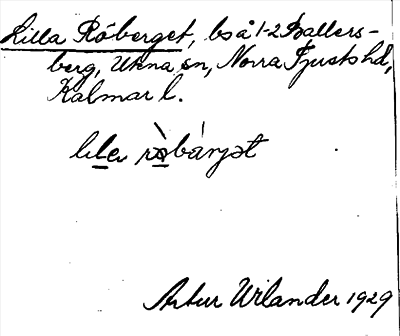 Lilla Råberget, bs å 1-2 Ballers-
berg, Ukna sn, Norra Tjusts hd,
Kalmar l.
lɩle råbárjət
Artur Wilander 1929